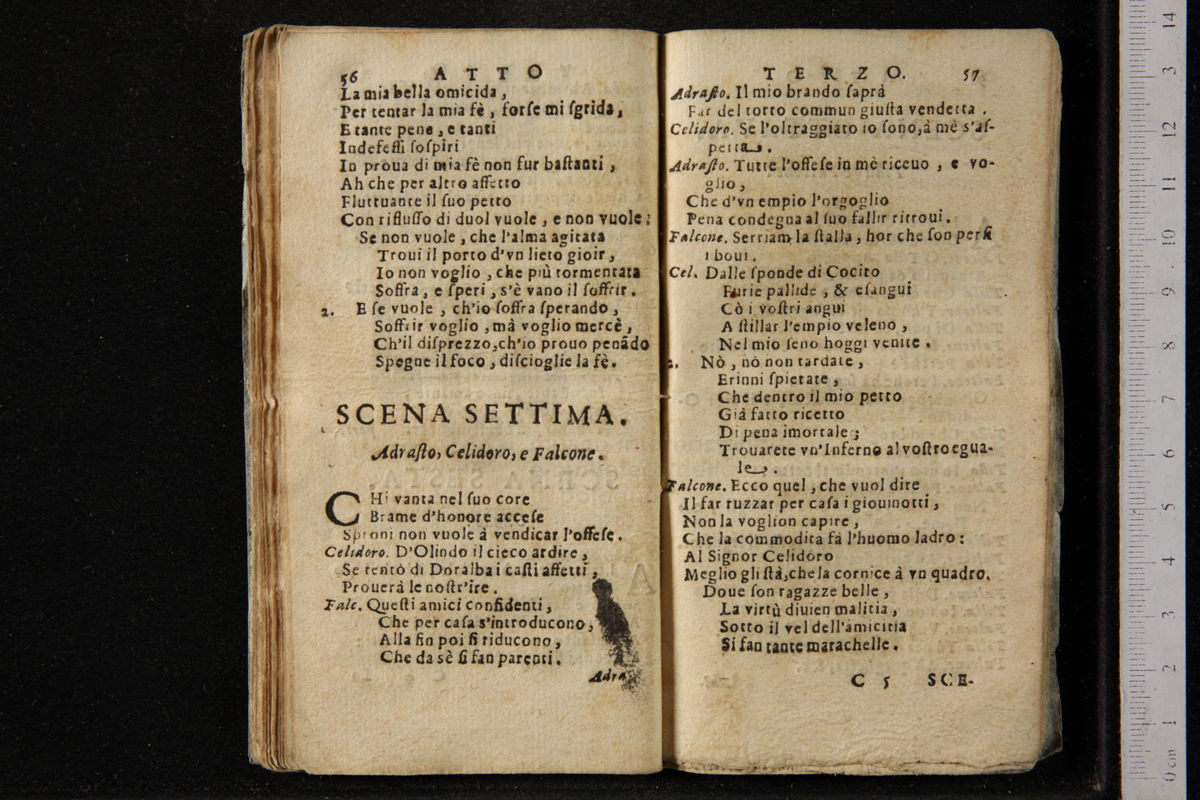 56 ATTO
La mia bella omicida,
Per tentar la mia fè, forſe mi ſgrida,
E tante pene, e tanti
Indefeſſi ſoſpiri
In proua di mia fè non fur baſtanti,
Ah che per altro affetto
Fluttuante il ſuo petto
Con rifluſſo di duol vuole, e non vuole:
Se non vuole, che l'alma agitata
Troui il porto d'vn lieto gioir,
Io non voglio, che più tormentata
Soffra, e ſperi, s'è vano il ſoffrir.
2. E ſe vuole, ch'io ſoffra ſperando,
Soffrir voglio, mà voglio mercè,
Ch'il diſprezzo, ch'io prouo penãdo
Spegne il foco, diſcioglie la fè.
SCENA SETTIMA.
Adraſto, Celidoro, e Falcone.
CHi vanta nel ſuo core
Brame d'honore acceſe
Sproni non vuole à vendicar l'offeſe.
Celidoro. D'Olindo il cieco ardire,
Se tentò di Doralba i caſti affetti,
Prouerà le noſtr'ire.
Falc. Queſti amici confidenti,
Che per caſa s'introducono,
Alla fin poi ſi riducono,
Che da sè ſi fan parenti.
Adra-
TERZO. 57
Adraſto. Il mio brando ſaprà
Far del torto commun giuſta vendetta.
Celidoro. Se l'oltraggiato io ſono, à mè s'aſ-
petta.
Adraſto. Tutte l'offeſe in mè riceuo, e vo-
glio,
Che d'vn empio l'orgoglio
Pena condegna al ſuo fallir ritroui.
Falcone. Serriam la ſtalla, hor che ſon perſi
i boui.
Cel. Dalle ſponde di Cocito
Furie pallide, & eſangui
Cò i voſtri angui
A ſtillar l'empio veleno,
Nel mio ſeno hoggi venite.
2. Nò, nò non tardate,
Erinni ſpietate,
Che dentro il mio petto
Già fatto ricetto
Di pena imortale;
Trouarete vn'Inferno al voſtro egua-
le.
Falcone. Ecco quel, che vuol dire
Il far ruzzar per caſa i giouinotti,
Non la voglion capire,
Che la commodità fà l'huomo ladro:
Al Signor Celidoro
Meglio gli ſtà, che la cornice à vn quadro.
Doue ſon ragazze belle,
La virtù diuien malitia,
Sotto il vel dell'amicitia
Si fan tante marachelle.
C 5 SCE-